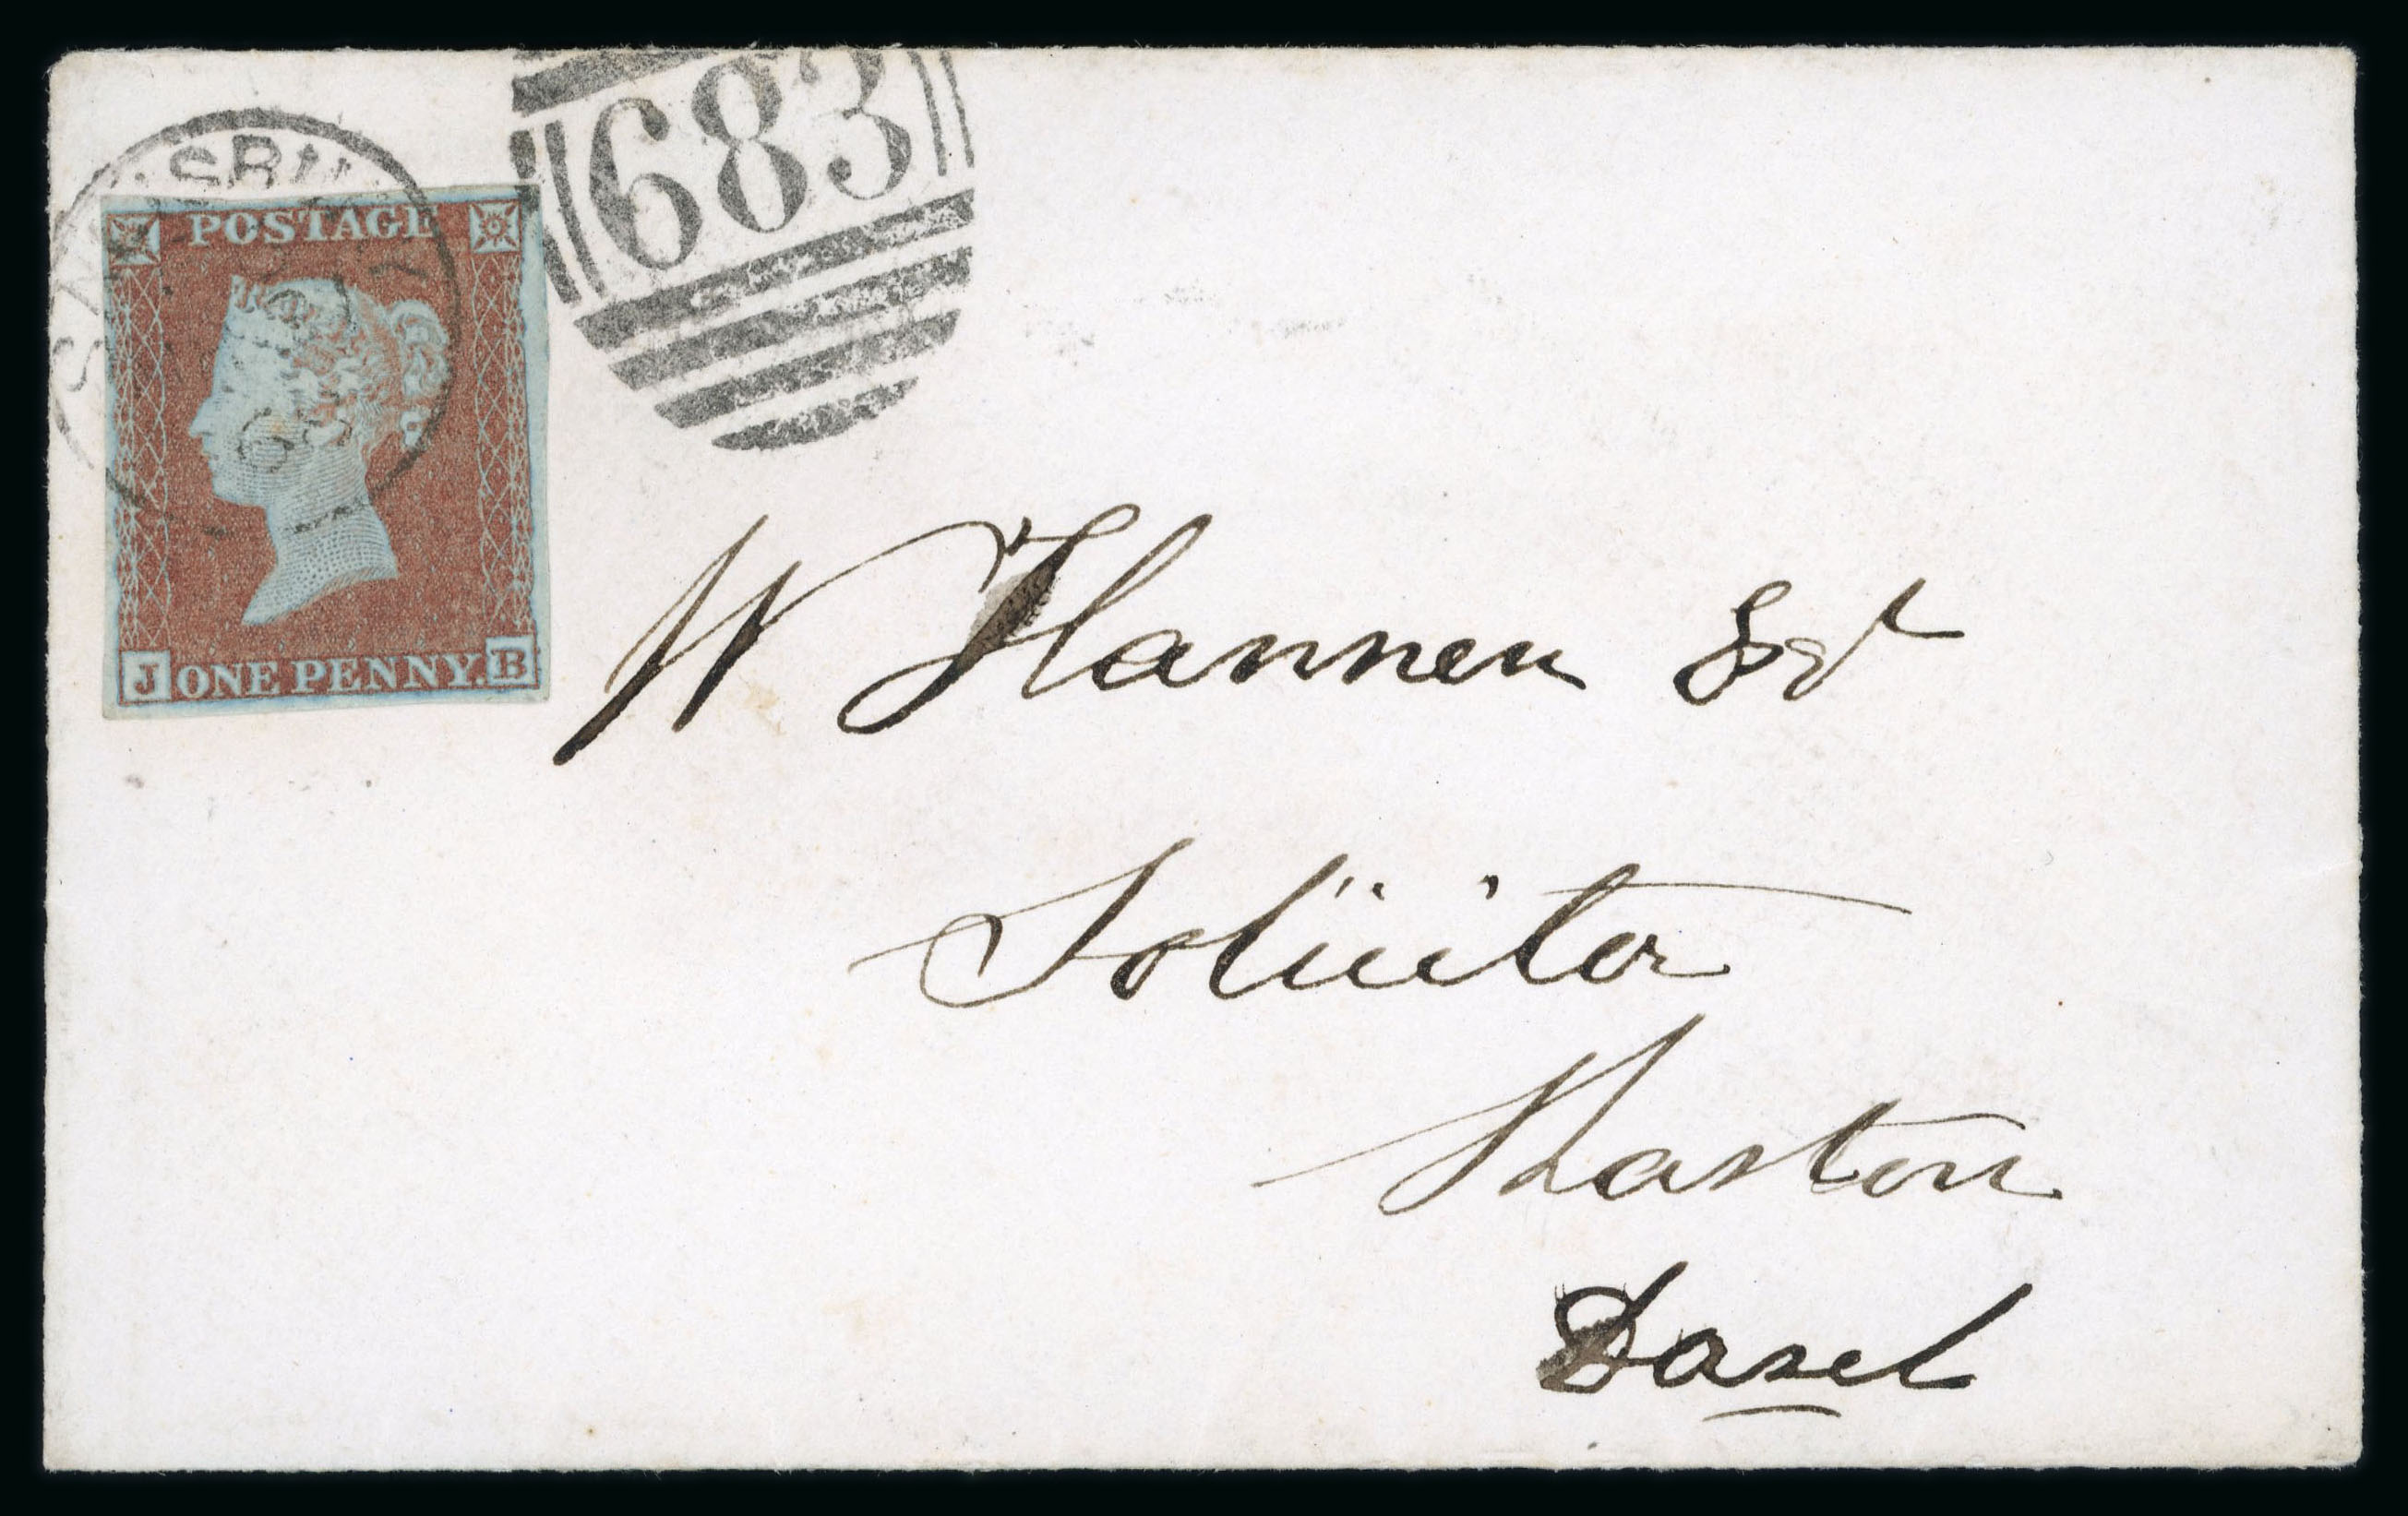 683
POSTAGE
J ONE PENNY. B
W Hannen Esq
Solicitor
Shaston
Dorset